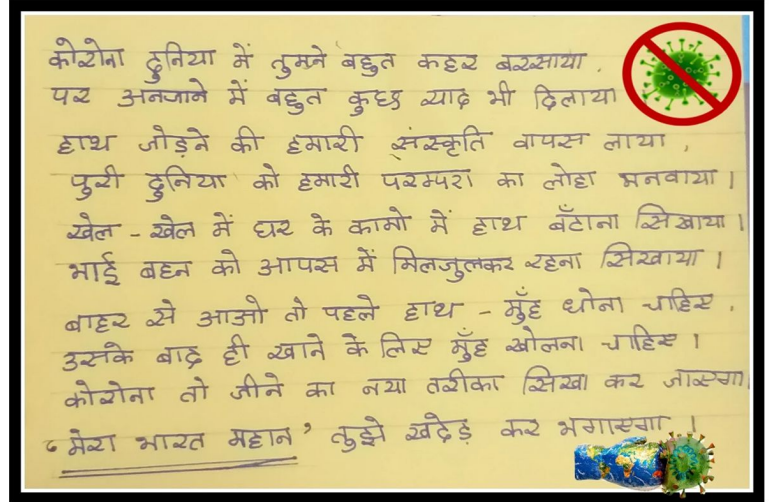 कोरोना दुनिया में तुमने बहुत कहर बरसाया,
पर अनजाने में बहुत कुछ याद भी दिलाया
हाथ जोड़ने की हमारी संस्कृति वापस लाया,
पुरी दुनिया को हमारी परम्परा का लोहा मनवाया।
खेल - खेल में घर के कामो में हाथ बँटाना सिखाया।
भाई बहन को आपस में मिलजुलकर रहना सिखाया।
बाहर से आओ तो पहले हाथ - मुँह धोना चाहिए,
उसके बाद ही खाने के लिए मुँह खोलना चाहिए।
कोरोना तो जीने का नया तरीका सिखा कर जाएगा
‘मेरा भारत महान’ तुझे खदेड़ कर भगाएगा।